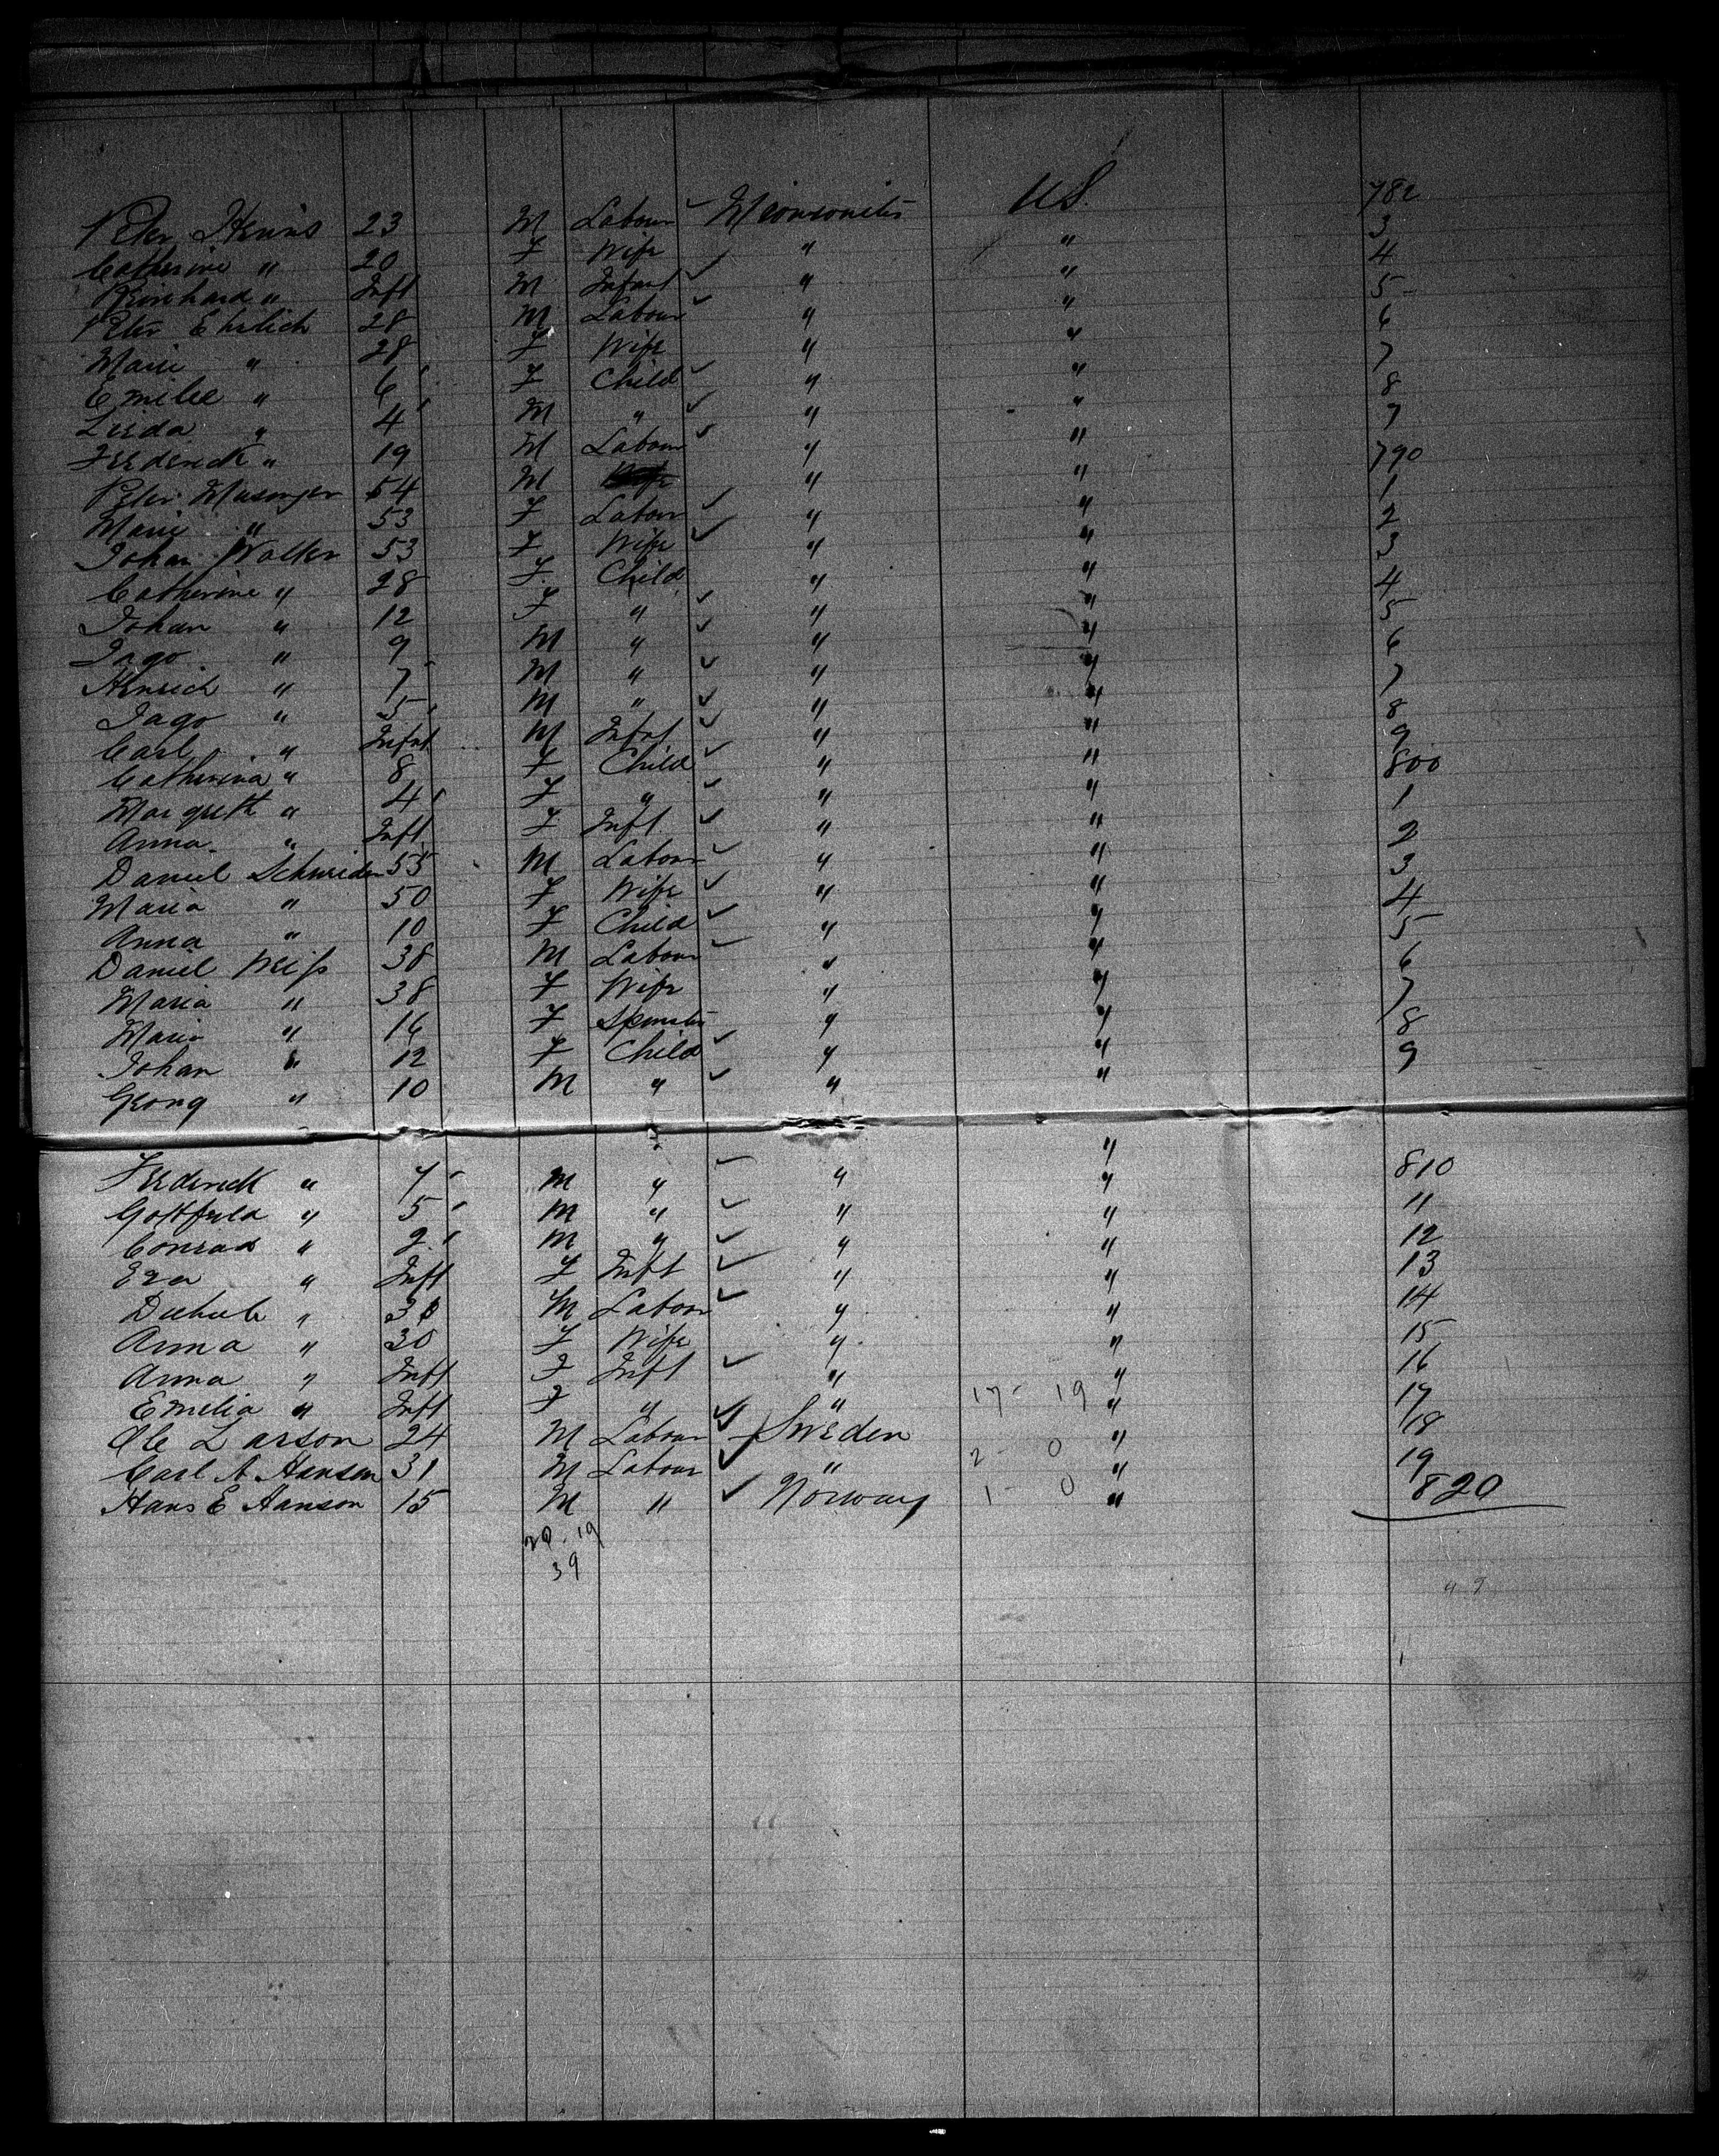 Peter Heinis 23 M Labour Mennonites U.S. 782
Catherine " 20 F Wife " " 3
Reinhard " Inft M Infant " " 4
Peter Ehrlich 28 M Labour " " 5
Marie " 28 F Wife " " 6
Emilee " 6 F Child " " 7
Lieda " 4 M " " " 8
Frederick " 19 M Labour " " 9
Peter Musinger 54 M " " 790
Marie " 53 F Labour " " 1
Johan Walker 53 F Wife " " 2
Catherine " 28 F. Child " " 3
Johan " 12 F " " " 4
Jago " 9 M " " " 5
Henrich " 7 M " " " 6
Jago " 5 M " " " 7
Carl " Infnt M Infnt " " 8
Catherina " 8 F Child " " 9
Margreth " 4 F " " " 800
Anna " Inft F Inft " " 1
Daniel Schneider 55 M Labour " " 2
Maria " 50 F Wife " " 3
Anna " 10 F Child " " 4
Daniel Weiss 38 M Labour " " 5
Maria " 38 F Wife " " 6
Maria " 16 F Spinster " " 7
Johan " 12 F Child " " 8
Georg " 10 M " " " 9
Frederick " 7 M " " " 810
Gottfried " 5 M " " " 11
Conrad " 2 M " " " 12
Eza " Inft F Inft " " 13
" 30 M Labour " " 14
Anna " 30 F Wife " " 15
Anna " Inft F Inft " " 16
Emilia " Inft F " " 17 - 19 " 17
Ole Larson 24 M Labour Sweden " 18
Carl A Hanson 31 M Labour " 2 - 0 " 19
Hans E Hanson 15 M " Norway 1 - 0 " 820
20. 19
39